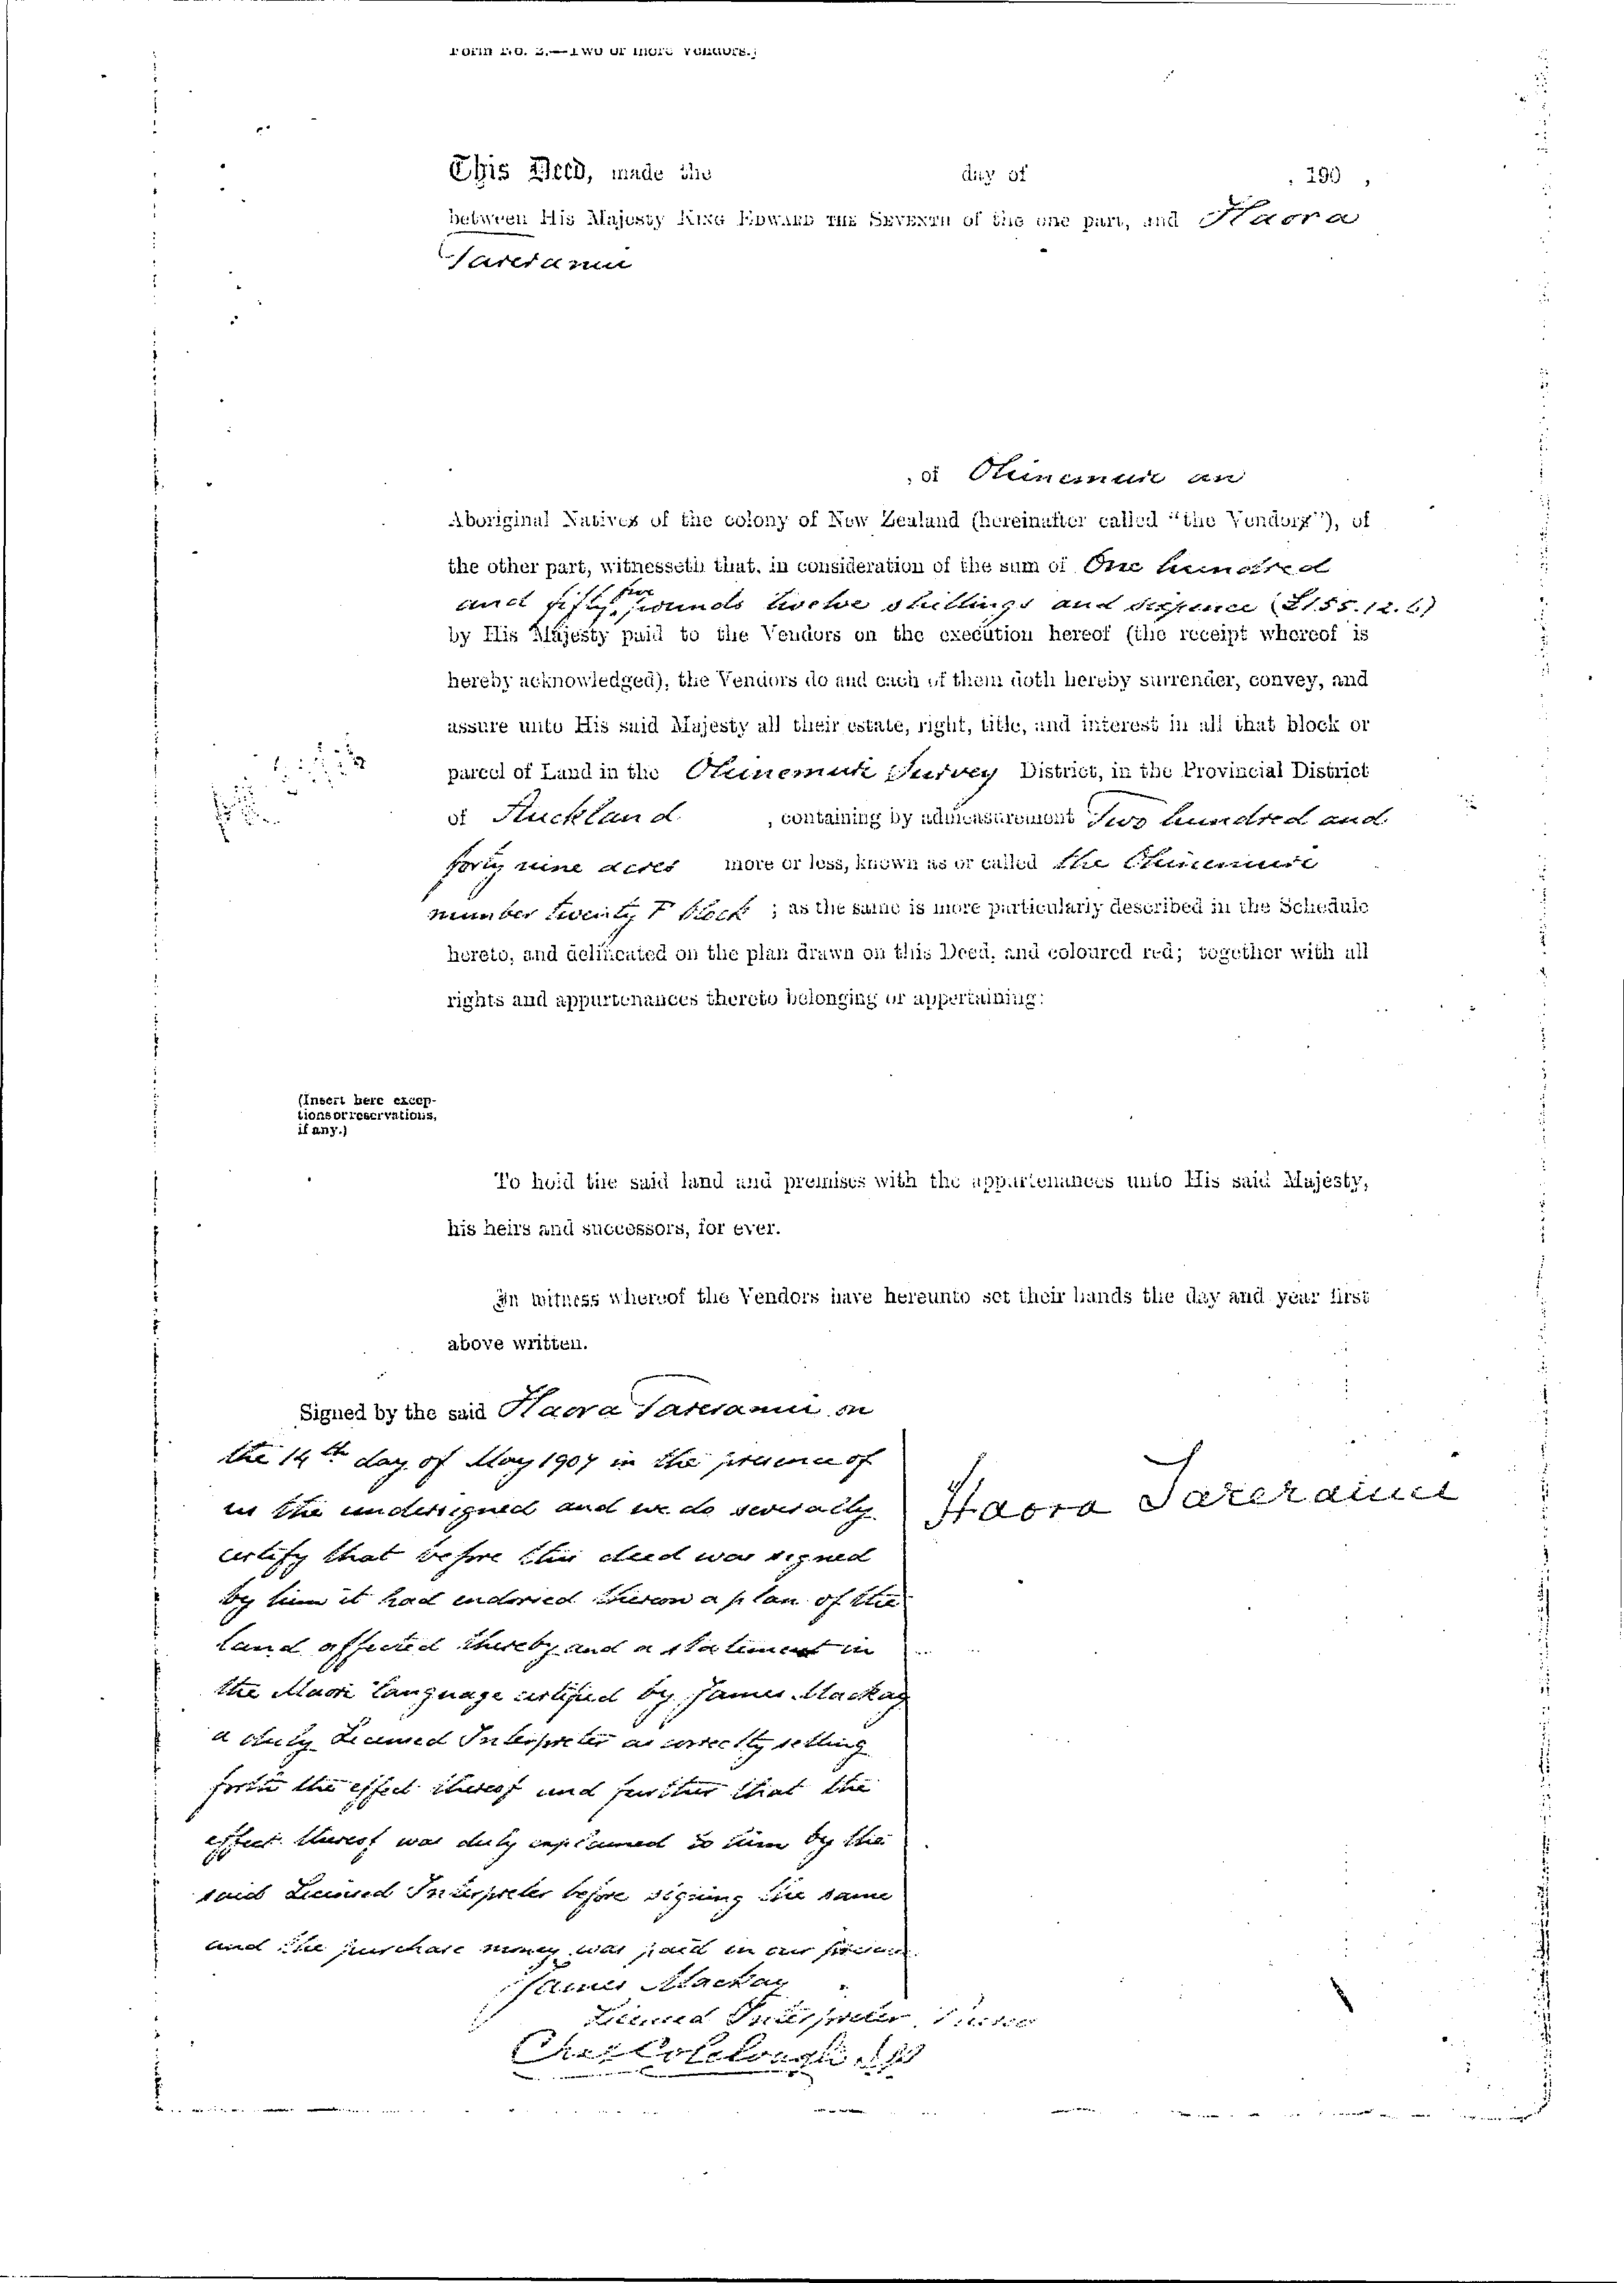 Form No. 2.—Two or more Vendors.]
This Deed, made the day of , 190 ,
between His Majesty King Edward the Seventh of the one part, and Haora
Tareranui
, of Ohinemuri an
Aboriginal Natives of the colony of New Zealand (hereinafter called "the Vendors"), of
the other part, witnesseth that, in consideration of the sum of One hundred
and fifty five pounds twelve shillings and sixpence (£155.12.6)
by His Majesty paid to the Vendors on the execution hereof (the receipt whereof is
hereby acknowledged), the Vendors do and each of them doth hereby surrender, convey, and
assure unto His said Majesty all their estate, right, title, and interest in all that block or
parcel of Land in the Ohinemuri Survey District, in the Provincial District
of Auckland , containing by admeasurement Two hundred and
forty nine acres more or less, known as or called the Ohinemuri
number twenty block ; as the same is more particularly described in the Schedule
hereto, and delineated on the plan drawn on this Deed, and coloured red; together with all
rights and appurtenances thereto belonging or appertaining:
(Insert here excep-
tions or reservations,
if any.)
To hold the said land and premises with the appurtenances unto His said Majesty,
his heirs and successors, for ever.
In witness whereof the Vendors have hereunto set their hands the day and year first
above written.
Signed by the said Haora Tareranui on
the 14th day of May 1907 in the presence of
us the undersigned and we do severally
certify that before this deed was signed
by him it had endorsed thereon a plan of the
land affected thereby and a statement in
the Maori language certified by James Mackay
a duly Licensed Interpreter as correctly setting
forth the effect thereof and further that the
effect thereof was duly explained to him by the
said Licensed Interpreter before signing the same
and the purchase money was paid in our presence.
Haora Tareranui
James Mackay
Licensed Interpreter